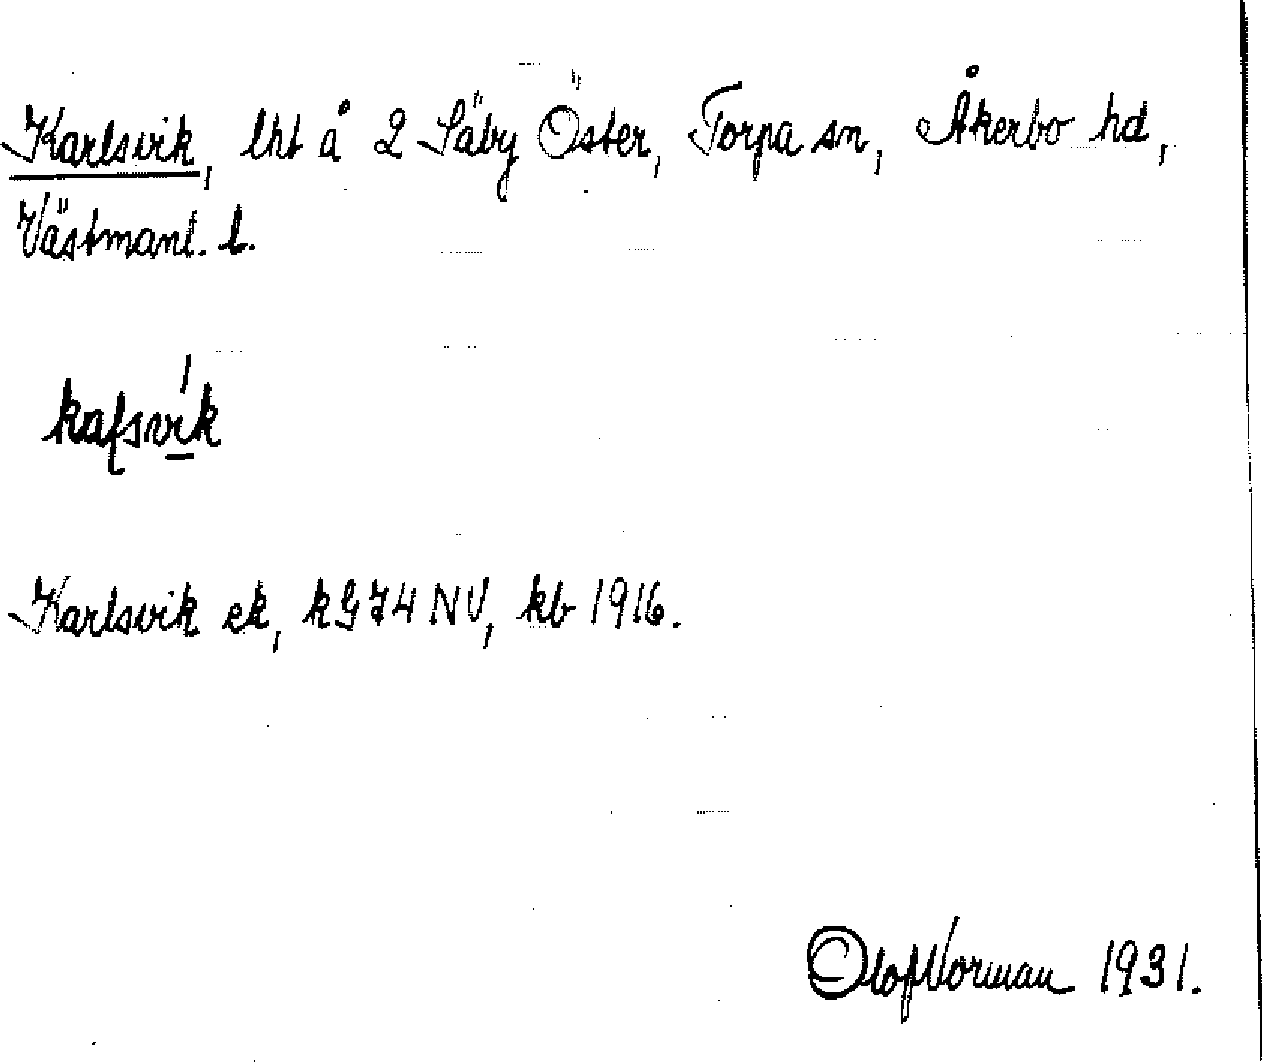 Karlsvik, lht å 2 Säby Öster, Torpa sn, Åkerbo hd,
Västmanl. l.
Karlsvik ek, kG74 NV, kb 1916.
Olof Norman 1931.